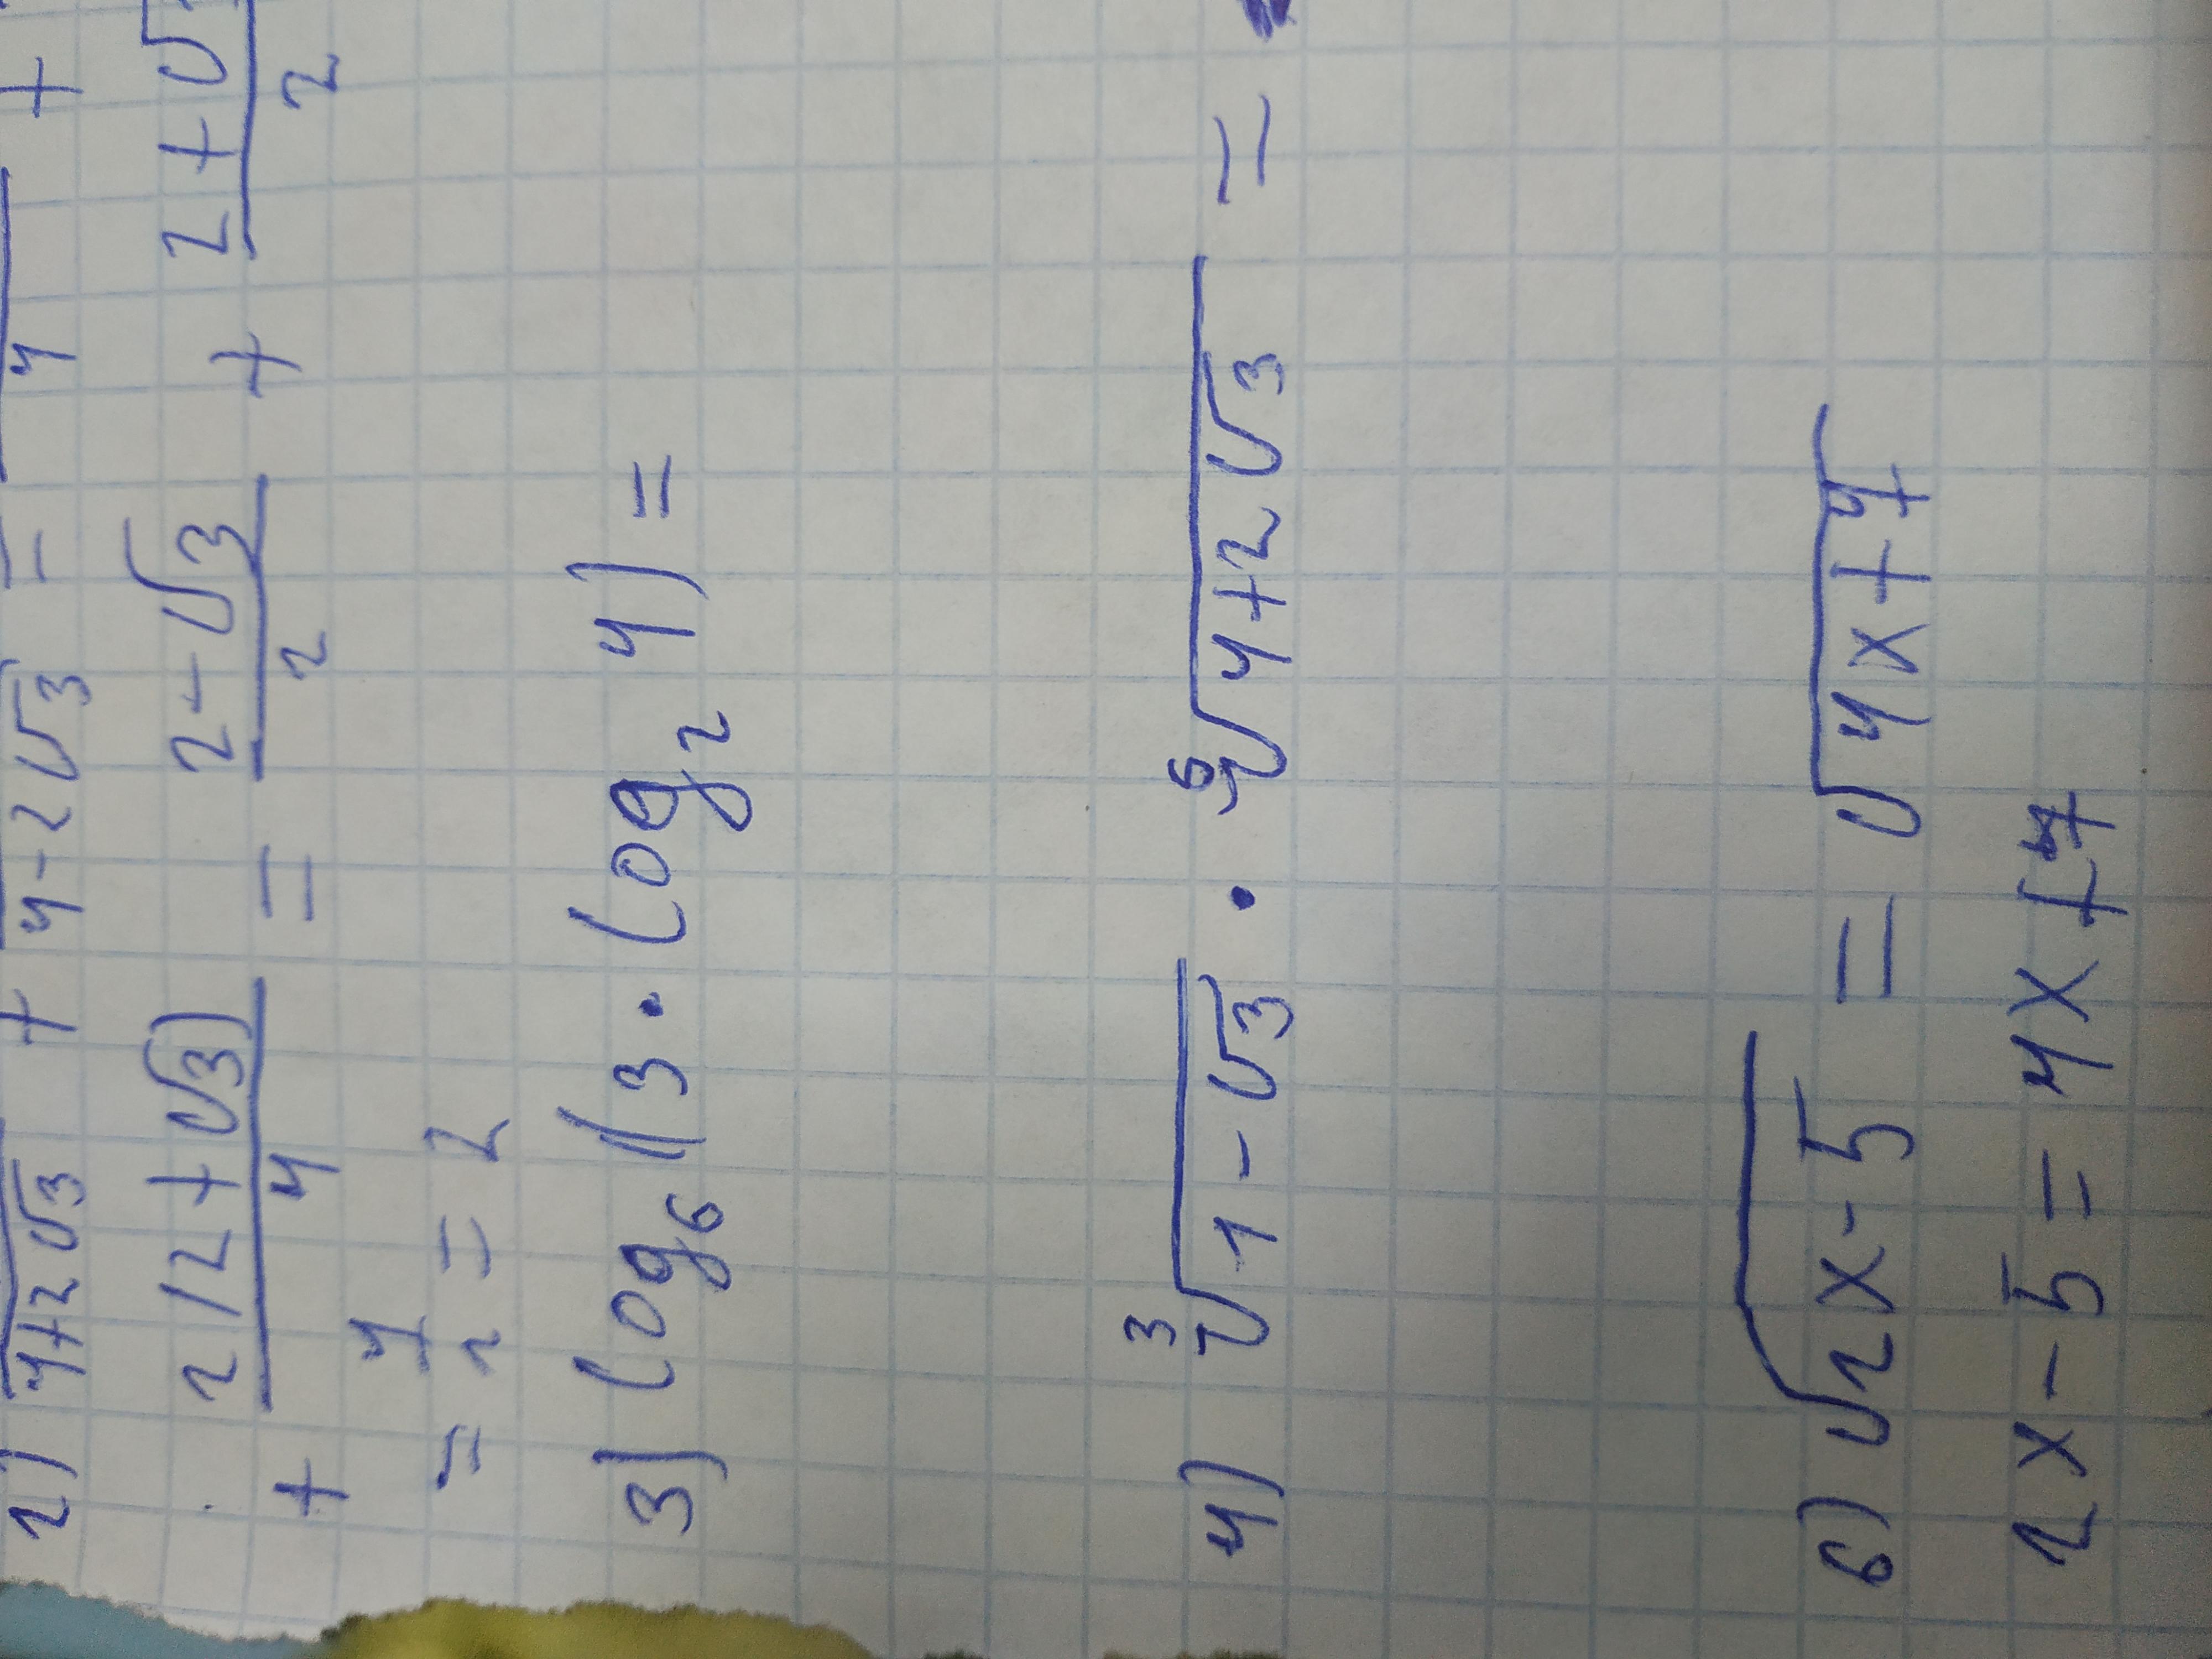 2) 4+2√3 + 4-2√3 = 4 +
2(2+√3) / 4 = 2-√3 / 2 + 2+√ / 2
+
= 4/2 = 2
3) log₆(3·log₂4) =
4) ³√(1-√3) · ⁶√(4+2√3) =
6) √(2x-5) = √(4x+7)
2x-5=4x+7